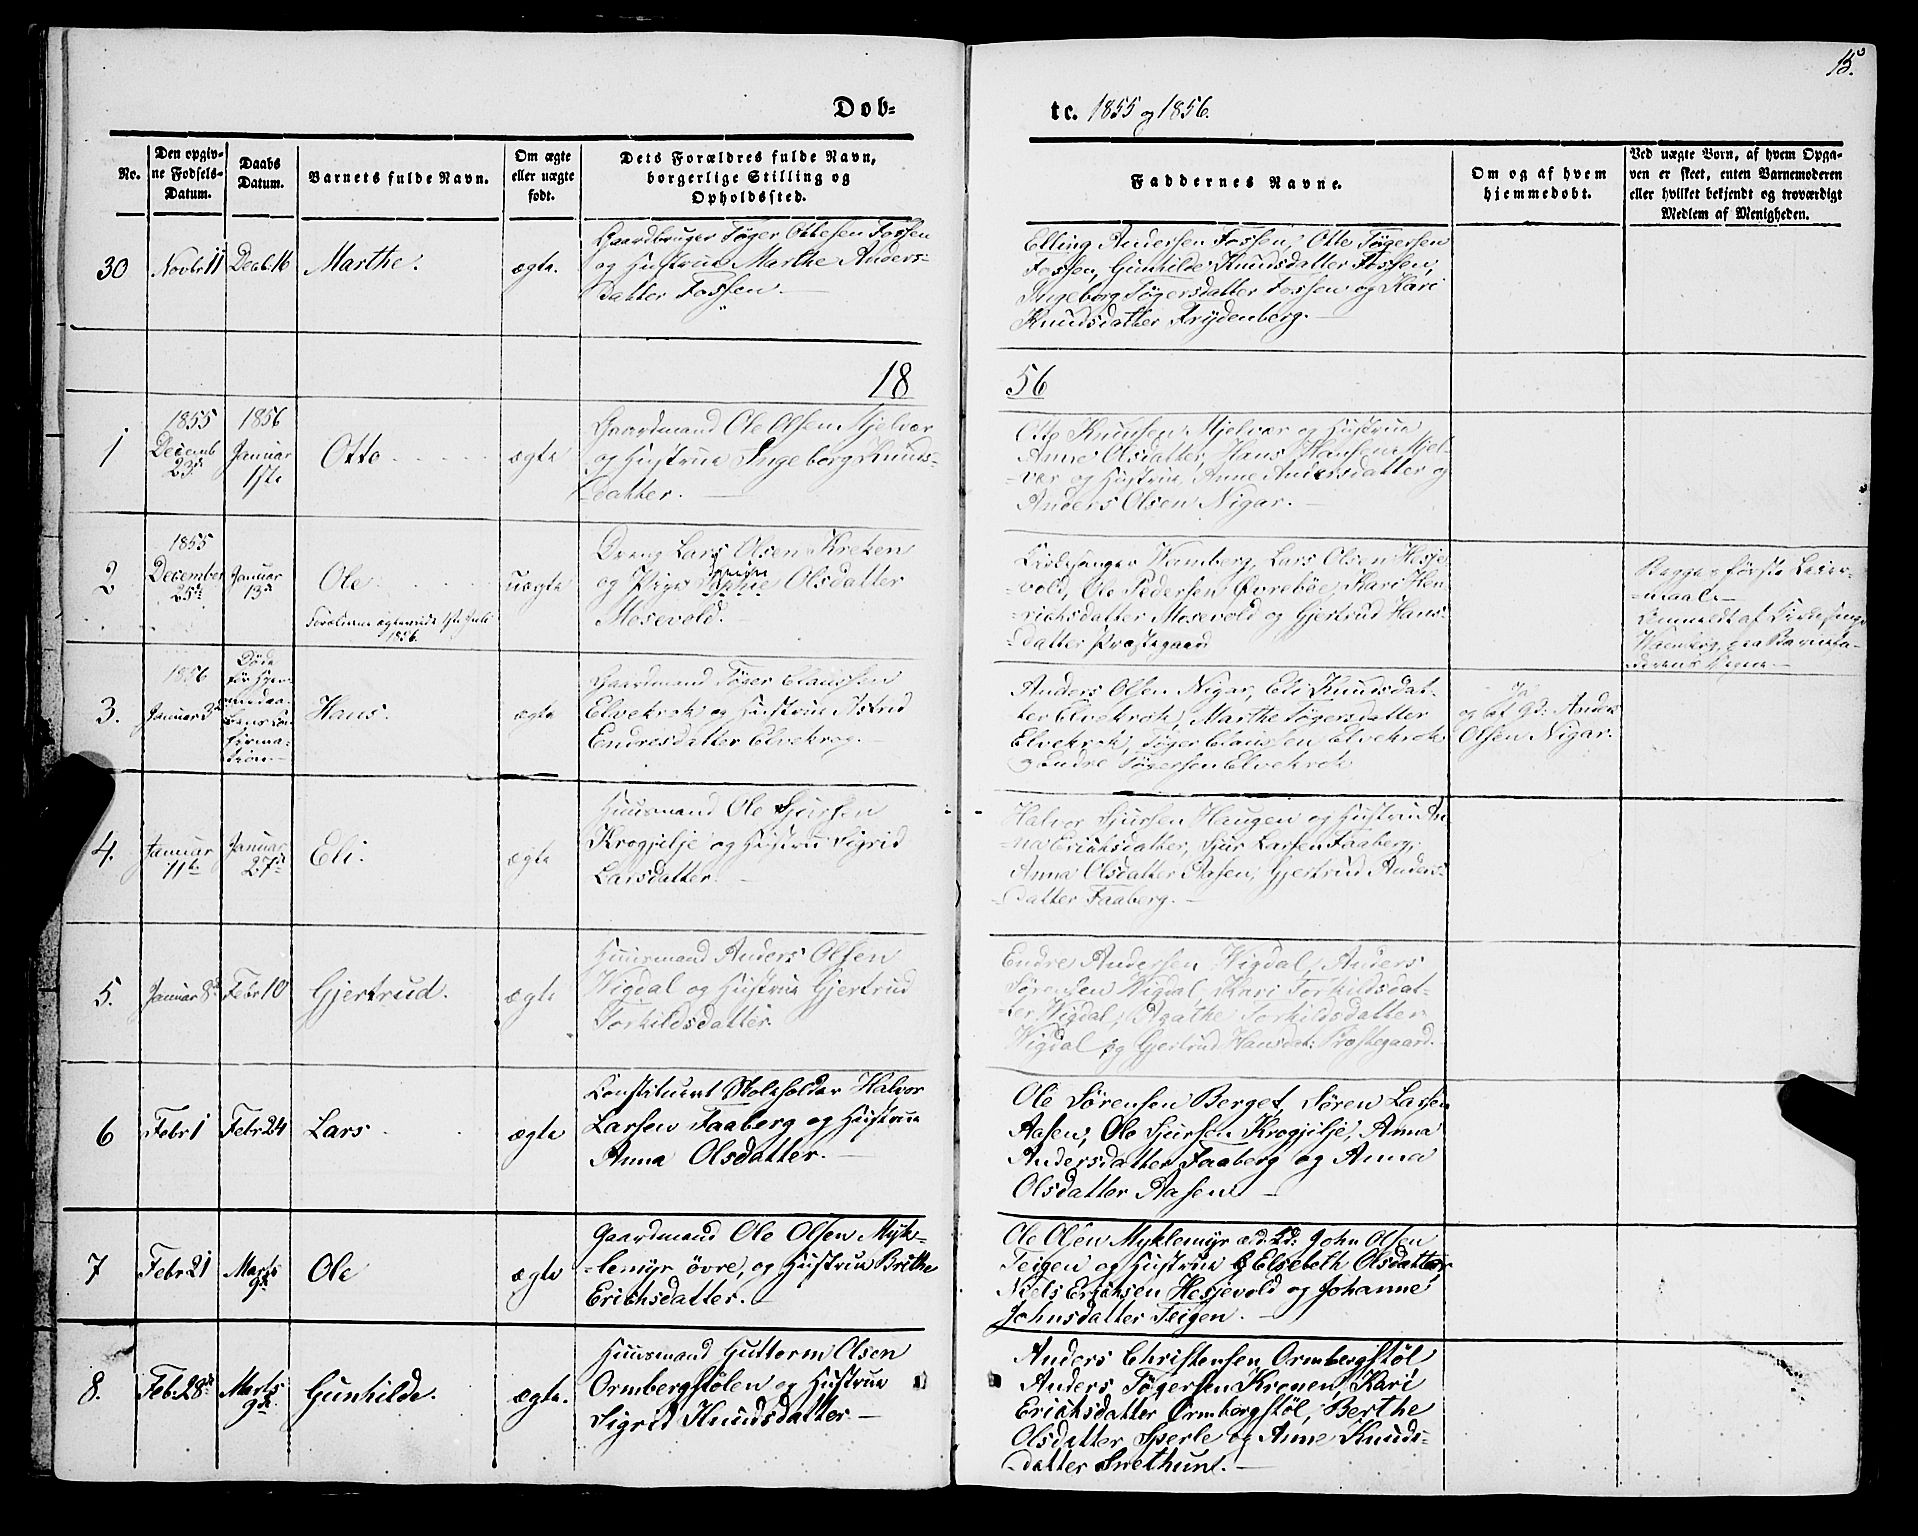 15.
Dob=
te. 1855 og 1856.
No.
Den opgiv=
ne Fødsels=
Datum.
Daabs
Datum.
Barnets fulde Navn.
Om ægte
eller uægte
født.
Dets Forældres fulde Navn,
borgerlige Stilling og
Opholdssted.
Faddernes Navne.
Om og af hvem
hjemmedøbt.
Ved uægte Børn, af hvem Opga=
ven er skeet, enten Barnemoderen
eller hvilket bekjendt og troværdigt
Medlem af Menigheden.
30
Novbr 11
Decb. 16
Marthe.
ægte.
Gaardbruger Tøger Ottesen Fossen
og Hustrue Marthe Anders=
datter Fossen.
Elling Andersen Fossen, Otte Tøgersen
Fossen, Gunhilde Knudsdatter Fossen,
Ingeborg Tøgersdatter Fossen og Kari
Knudsdatter Frydenberg.
18 56
1
1855
Decemb
23de
1856
Januar
1ste
Otto
ægte
Gaardmand Ole Olsen Mjelvær
og Hustrue Ingeborg Knuds=
datter.
Otto Knudsen Mjelvær og Hustrue
Anne Olsdatter, Hans Hansen Mjel=
=vær og Hustrue Anne Andersdatter og
Anders Olsen Nigar.
2
1855
December
25de
Januar
13de
Ole
Forældrene ægteviede 1ste Juli
1856.
uægte
Dreng Lars Olsen Kreken
og Pige Olsdatter
Mosevold.
Kirkesanger Wemberg, Lars Olsen Hesje
vold, Ole Pedersen Øvrebøe, Kari Hen=
=richsdatter Mosevold og Gjertrud Hans=
datter Præstegaard
Begges første Leier=
=maal.
Anmeldt af Kirkesanger
Wemberg, paa Barnefa=
derens Vegne
3.
1856
Januar 3de
Døde
før Hjem=
medaa=
bens Con
firma=
tion.
Hans.
ægte
Gaardmand Tøger Claussen
Elvekrok og Hustrue Astrid
Endresdatter Elvekrog.
Anders Olsen Nigar, Eli Knudsdat=
ter Elvekrok, Marthe Tøgersdatter
Elvekrok, Tøger Claussen Elvekrok
og Endre Tøgersen Elvekrok
Ja
og af Gd: Anders
Olsen Nigar.
4.
Januar
11te
Januar
27de
Eli.
ægte
Huusmand Ole Sjursen
Krogjilje og Hustrue Sigrid
Larsdatter.
Halvor Sjursen Haugen og Hustrue An
=na Erichsdatter, Sjur Larsen Faaberg,
Anna Olsdatter Aasen, Gjertrud Anders=
datter Faaberg.
5.
Januar 8de
Febr 10
Gjertrud.
ægte
Huusmand Anders Olsen
Wigdal og Hustrue Gjertrud
Torkildsdatter.
Endre Andersen Wigdal, Anders
Sørensen Wigdal, Kari Torkildsdat=
=ter Wigdal, Agathe Torkildsdatter
Wigdal og Gjertrud Hansdat: Præstegaard.
6
Febr 1
Febr 24
Lars
ægte
Constitueret Skoleholder Halvor
Larsen Faaberg og Hustrue
Anna Olsdatter.
Ole Sørensen Berget, Søren Larsen
Aasen, Ole Sjursen Krogjilje, Anna
Andersdatter Faaberg og Anna
Olsdatter Aasen
7
Febr 21
Marts
9de
Ole
ægte
Gaardmand Ole Olsen Myk=
=lemyr øvre, og Hustrue Brithe
Erichsdatter.
Ole Olsen Myklemyr æld: John Olsen
Teigen og Hustrue Elsebeth Olsdatter,
Niels Erichsen Hesjevold og Johanne
Johnsdatter Teigen.
8.
Feb. 28de
Marts
9de
Gunhilde.
ægte.
Huusmand Guttorm Olsen
Ormbergstølen og Hustrue
Sigrid Knudsdatter
Anders Christensen Ormbergstøl
Anders Tøgersen Kronen, Kari
Erichsdatter Ormbergstøl, Berthe
Olsdatter Sperle og Anne Knuds=
datter Snethun.